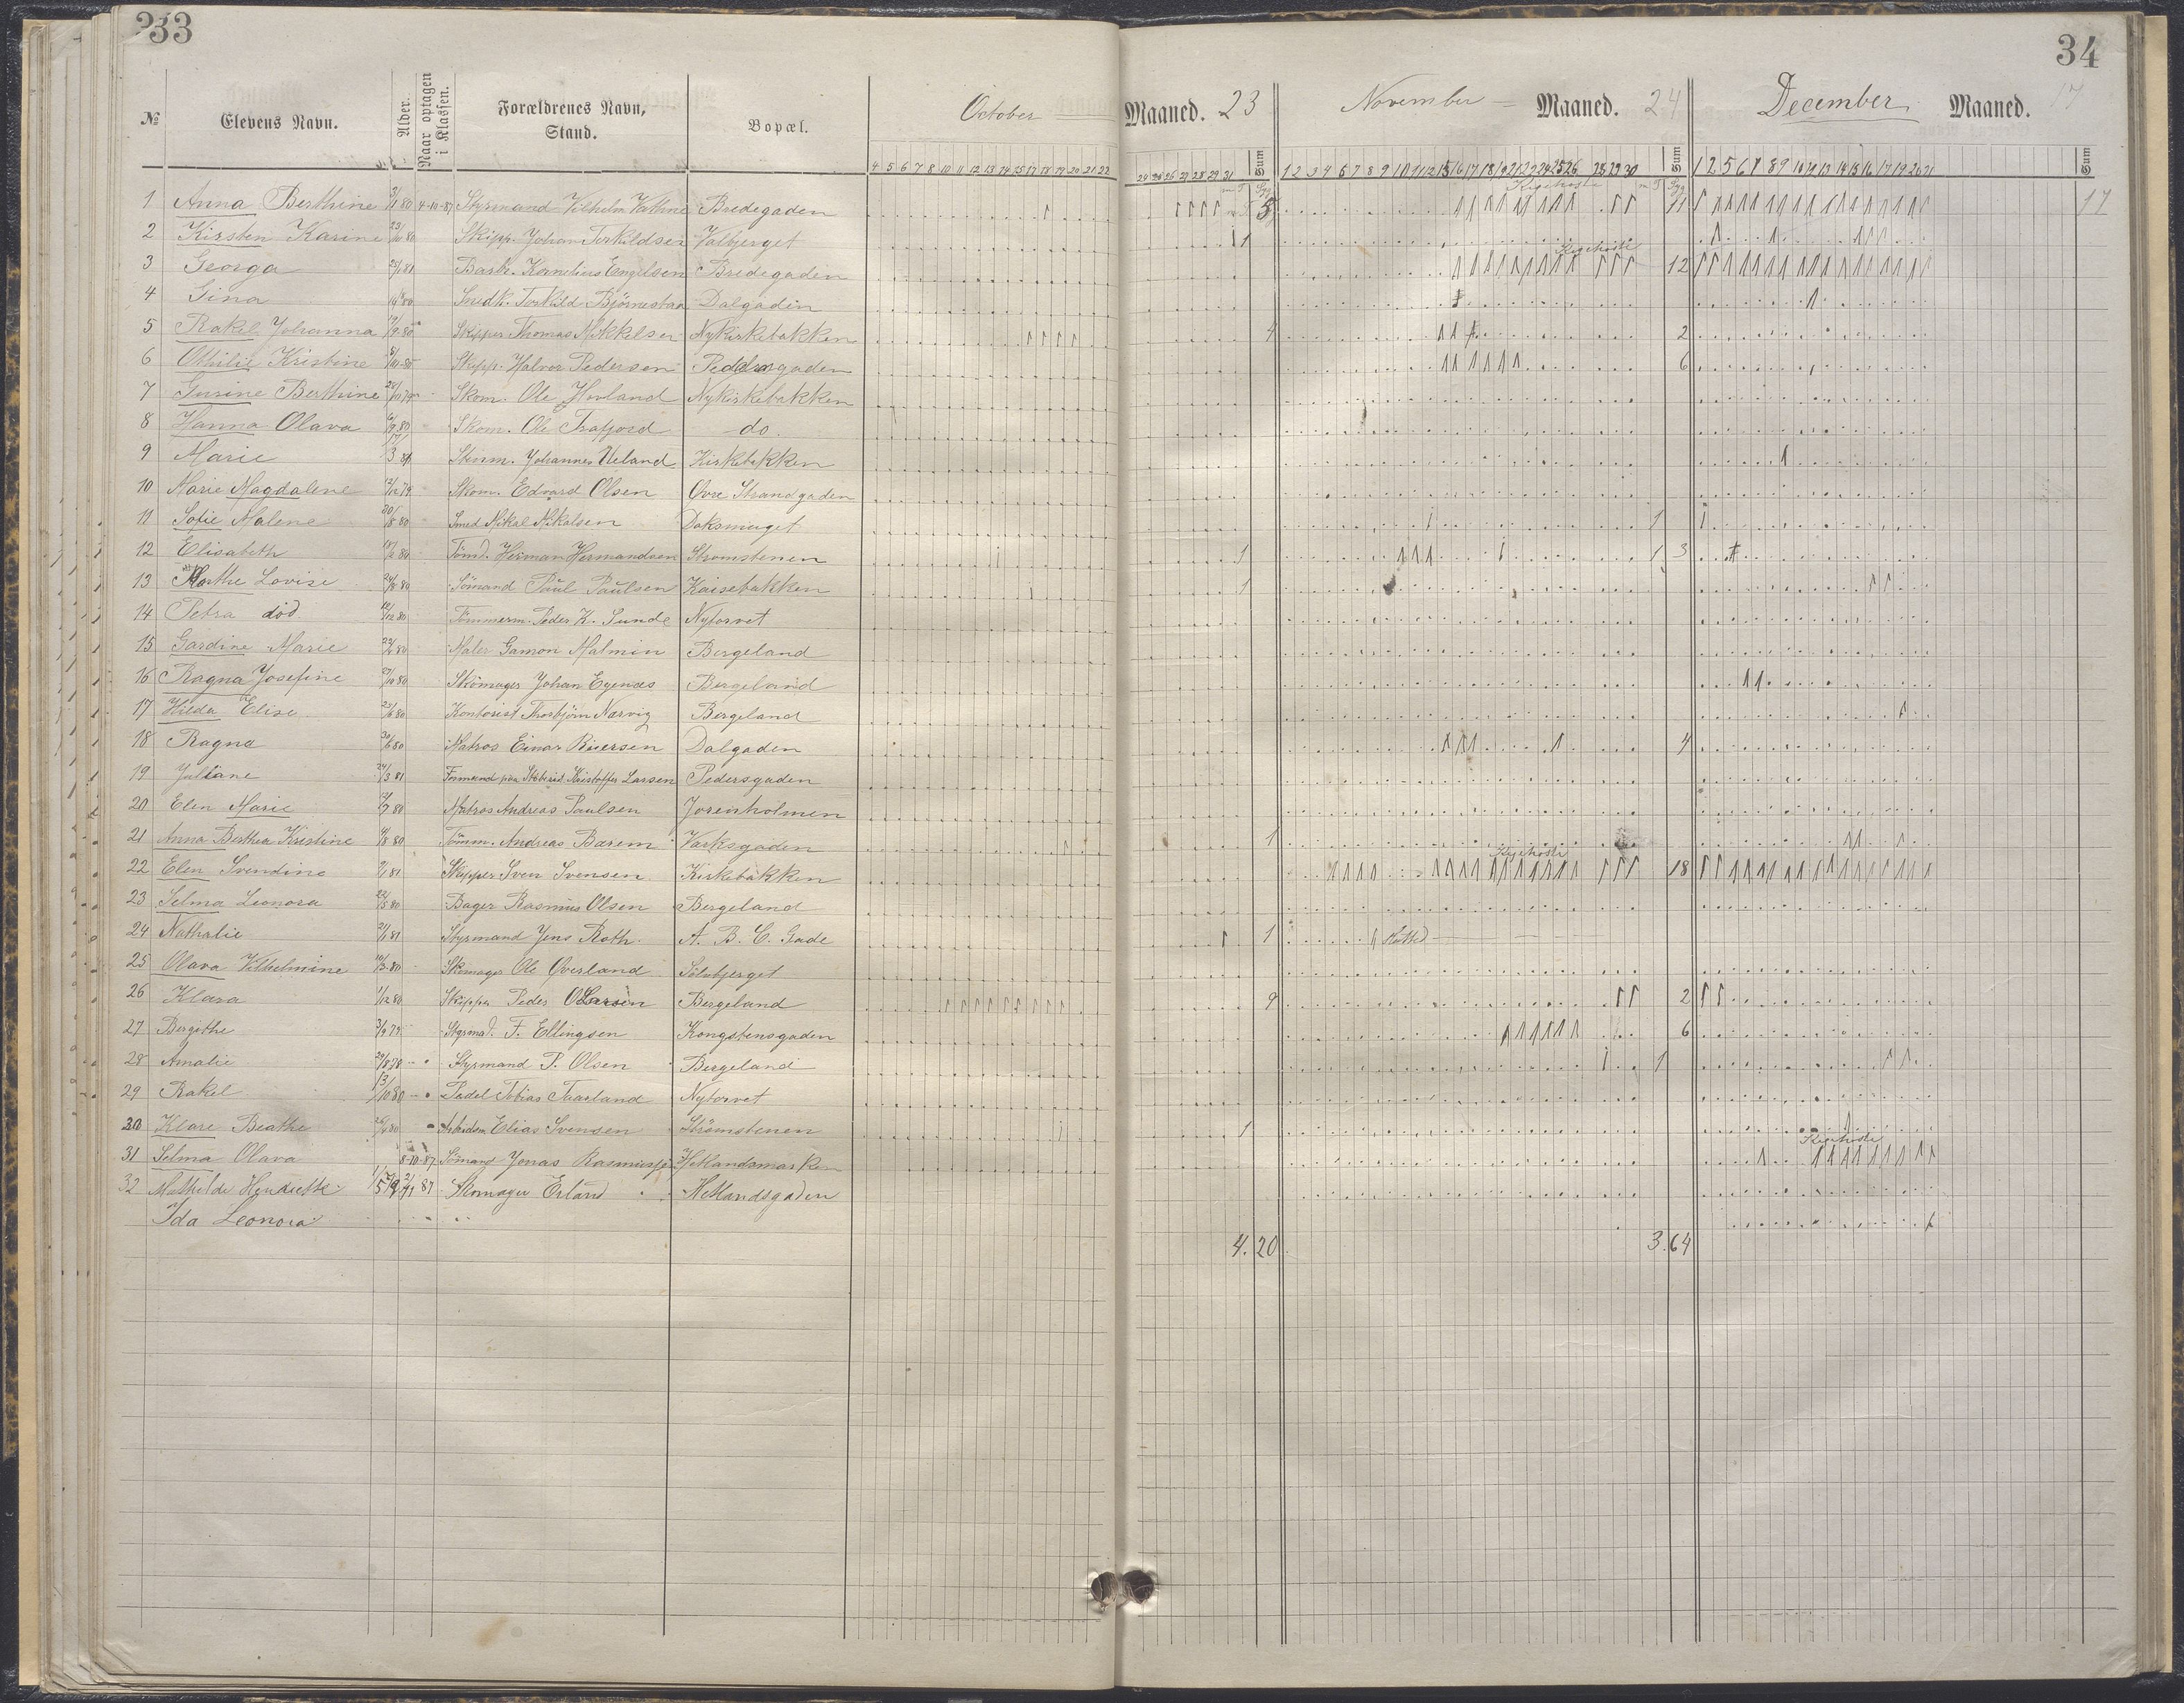 33
34
№ Elevens Navn. Alder. Naar optagen i Klassen. Forældrenes Navn, Stand. Bopæl. October Maaned. 23 Sum November Maaned. 24 Sum December Maaned. 17 Sum
4 5 6 7 8 10 11 12 13 14 15 17 18 19 20 21 22 24 25 26 27 28 29 31 1 2 3 4 5 7 8 9 10 11 12 15 16 17 18 19 21 22 23 24 25 26 28 29 30 1 2 5 6 7 8 9 10 12 13 14 15 16 17 19 20 21
Kighoste
1 Anna Berthine 3/1 80 4-10-87 Styrmand Vilhelm Bredegaden 5 11 17
2 Kirsten Karine 23/10 80 Skipp. Johan Torkildsen Valbjerget 1
Kighoste
3 Georga 25/1 81 Kornelius Engelsen Bredegaden 12
4 Gina Snedk. Torkild Björnestaa Dalgaden
5 Rakel Johanna 19/9 80 Skipper Thomas Mikkelsen Nykirkebakken 4 2
6 Othilie Kristine Skipp. Halvor Pedersen Pedersgaden 6
7 Gurine Berthine 28/10 79 Skom. Ole Hovland Nykirkebakken
8 Hanna Olava 6/9 80 Skom. Ole Frafjord do.
9 Marie 17/3 81 Johannes Ueland Kirkebakken
10 Marie Magdalene 12/12 79 Skom. Edvard Olsen Øvre Strandgaden
11 Sofie Malene 30/8 80 Smed Mikal Mikalsen Doksmuget 1
12 Elisabeth Tömd. Herman Hermandsen Strømstenen 1 1 3
13 Marthe Lovise 24/8 80 Sömand Paul Paulsen Kaisebakken 1
14 Petra död 12/12 80 Tömmerm. Peder K. Sunde Nytorvet
15 Gardine Marie Maler Gamon Malmin Bergeland
16 Ragna Josefine 27/10 80 Skömager Johan Egenæs Bergeland
17 Hilda Elise 23/6 80 Kontorist Thorbjörn Narvig Bergeland
18 Ragna 30/6 80 Matros Einar Riversen Dalgaden 4
19 Juliane 24/3 81 Formand paa Kristoffer Larsen Pedersgaden
20 Elen Marie 12/7 80 Matros Andreas Paulsen Jorenholmen
21 Anna Berthea Kristine 4/8 80 Tömm. Andreas Barem Varksgaden 1
Kighoste
22 Elen Svendine 9/1 81 Skipper Sven Svensen Kirkebakken 18
23 Selma Leonora 22/5 80 Bager Rasmus Olsen Bergeland
24 Nathalie 21/1 81 Styrmand Jens Roth. A. B. C. Gade 1 flyttet
25 Olava Vilhelmine 16/3 80 Skomager Ole Øverland Sölvbjerget
26 Klara 1/12 80 Skipper Peder O Larsen Bergeland 9 2
27 Bergithe 3/9 79 Styrmd. F. Ellingsen Kongstensgaden 6
28 Amalie 29/8 78 Styrmand P. Olsen Bergeland 1
29 Rakel 13/10 80 Pedel Tobias Taarland Nytorvet
30 Klare Beathe 26/4 80 Arbeidsm Elias Svensen Strömstenen 1
Kighoste
31 Selma Olava 8-10-87 Sömand Jonas Rasmussen Hetlandsmarken
32 Mathilde Hendrette 1/5 79 2/11 87 Skomager Erland Hetlandsgaden
Ida Leonora
4.20 3.64